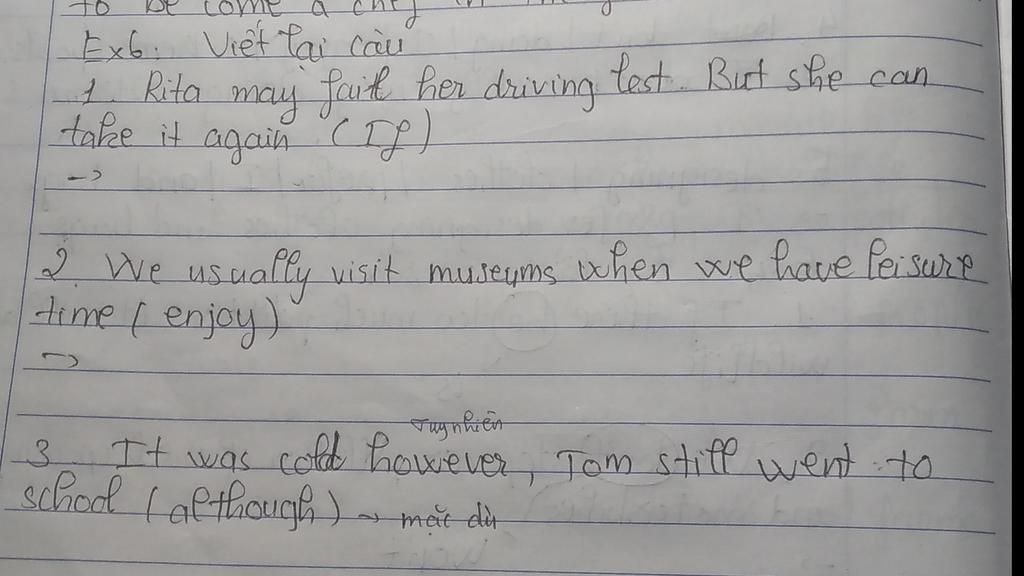 to be come a chef in
Ex6: Viết lại câu
1. Rita may fail her driving test. But she can
take it again (If)
->
2. We usually visit museums when we have leisure
time (enjoy)
->
Tuy nhiên
3 It was cold however, Tom still went to
school (although) -> mặc dù